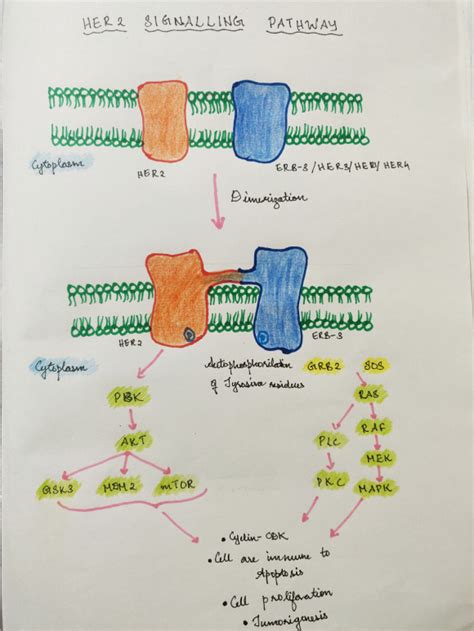 HER2 SIGNALLING PATHWAY
Cytoplasm
HER2
ERB-3/HER3/HER1/HER4
Dimerization
HER2
ERB-3
Cytoplasm
Autophosphorilation
of Tyrosine residues
GRB2 SOS
PI3K
RAS
AKT
PLC RAF
MEK
GSK3 MDM2 mTOR
PKC MAPK
• Cyclin-CDK
• Cell are immune to
Apoptosis
• Cell proliferation
• Tumorigenesis